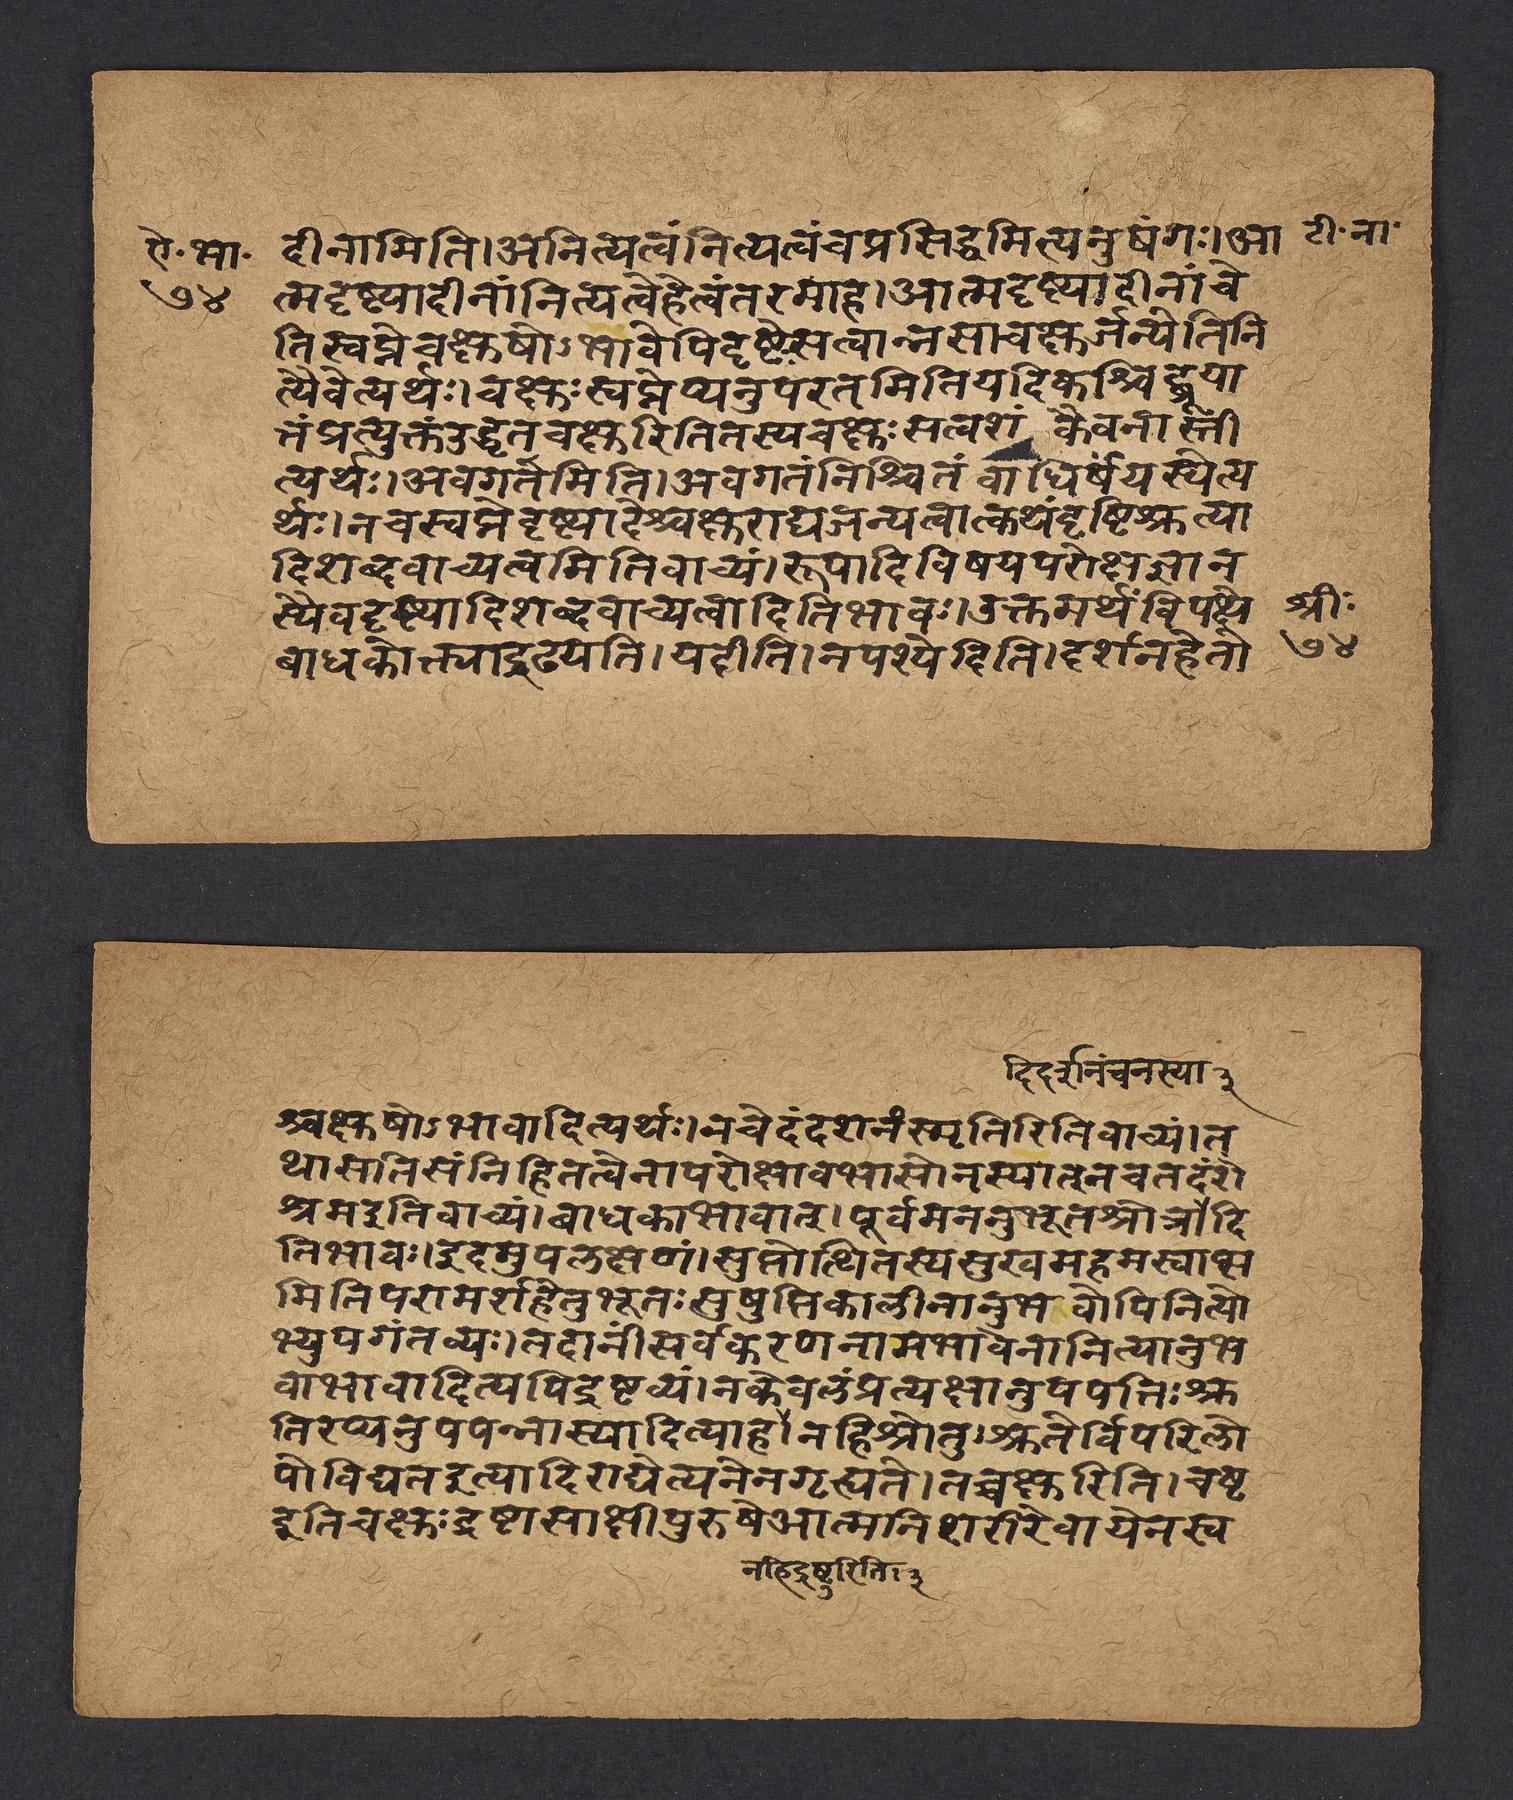 ऐ॰भा॰ दीनामिति।अनित्यत्वंनित्यत्वंचप्रसिद्धमित्यनुषंगः।आ टी॰ना॰
७४ त्मदृष्ट्यादीनांनित्यत्वेहेत्वंतरमाह।आत्मदृष्ट्यादीनांचे
तिस्वप्नेचक्षुषोऽभावेपिदृष्टेःसत्वान्नसाचक्षुर्जन्येतिनि
त्यैवेत्यर्थः।चक्षुःस्वप्नेप्यनुपरतमितियदिकश्चिद्ब्रूया
त्तंप्रत्युक्तंउद्धृतचक्षुरितितस्यचक्षुःसत्वशंकैवनास्ती
त्यर्थः।अवगतमिति।अवगतंनिश्चितंवाधिर्यंयस्येत्य
र्थः।नचस्वप्नेदृष्ट्यादेश्चक्षुराद्यजन्यत्वात्कथंदृष्टिश्रुत्या
दिशब्दवाच्यत्वमितिवाच्यं।रूपादिविषयपरोक्षज्ञान
स्यैवदृष्ट्यादिशब्दवाच्यत्वादितिभावः।उक्तमर्थंविपक्षे श्रीः
बाधकोक्त्याद्रढयति।यदीति।नपश्येदिति।दर्शनहेतो ७४
दिदर्शनंचनस्या३
श्चक्षुषोऽभावादित्यर्थः।नचेदंदशनंस्मृतिरितिवाच्यं।त
थासतिसंनिहितत्वेनापरोक्षावभासोनस्यात्नचतदंशे
भ्रमइतिवाच्यं।बाधकाभावात्।पूर्वमननुभूतश्रोत्रादि
तिभावः।इदमुपलक्षणं।सुप्तोत्थितस्यसुखमहमस्वाप्स
मितिपरामर्शहेतुभूतःसुषुप्तिकालीनानुभवोपिनित्यो
भ्युपगंतव्यः।तदानींसर्वकरणनामभावेनानित्यानुभ
वाभावादित्यपिद्रष्टव्यं।नकेवलंप्रत्यक्षानुपपत्तिःश्रु
तिरप्यनुपपन्नास्यादित्याह।नहिश्रोतुःश्रुतेर्विपरिलो
पोविद्यतइत्यादिराद्येत्यनेनगृह्यते।तच्चक्षुरिति।चष्ट
इतिचक्षुःद्रष्टासाक्षीपुरुषेआत्मनिशरीरेवायेनस्व
नहिद्रष्टुरिति।३